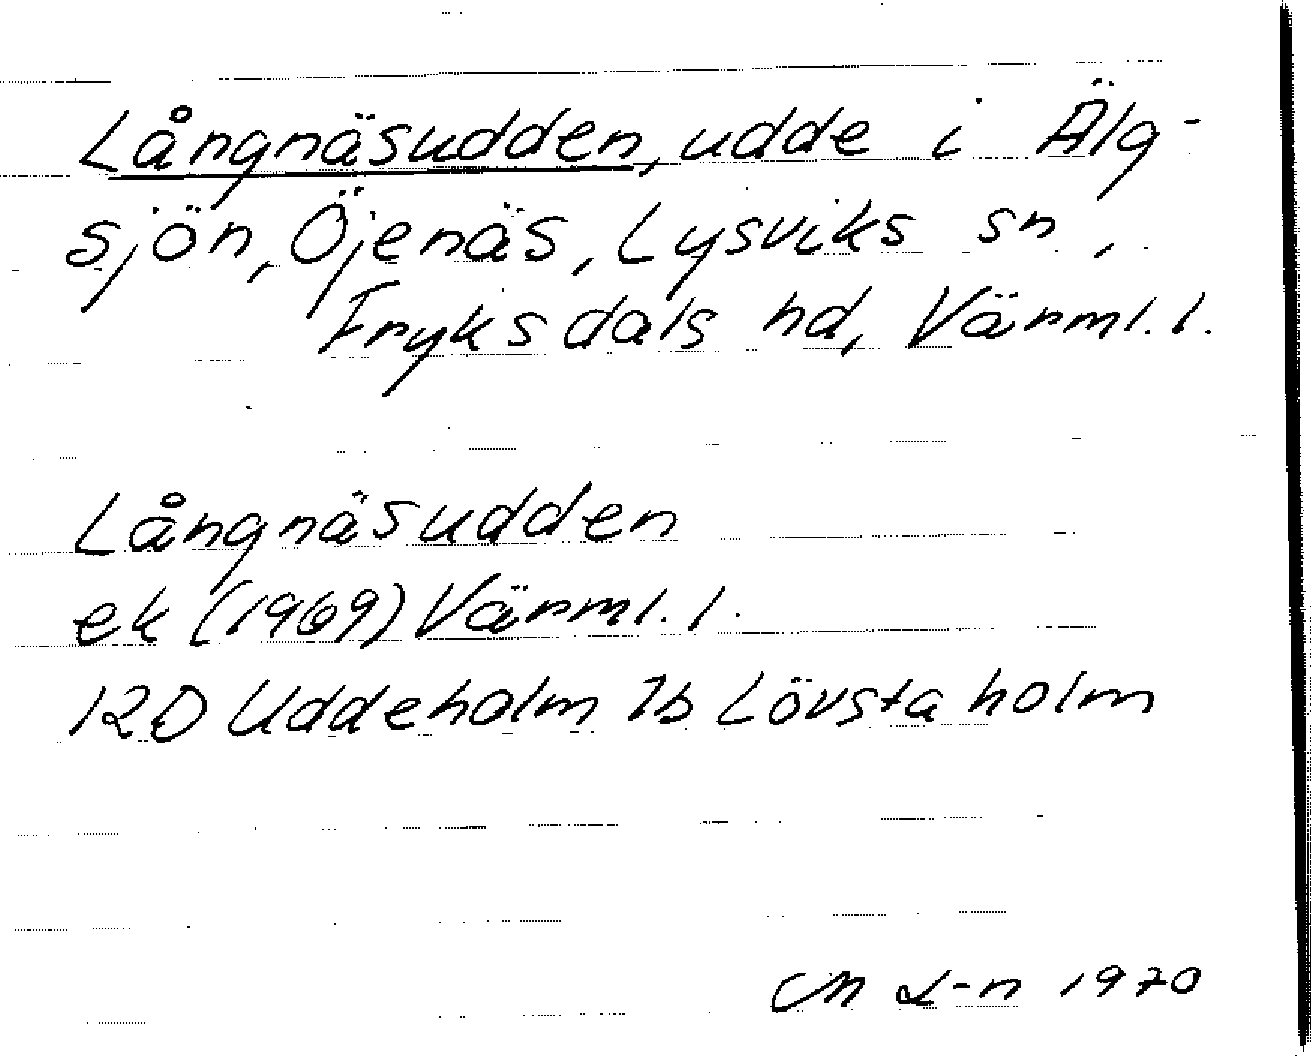 Långnäsudden, udde i Älg-
sjön, Öjenäs, Lysviks sn,
Fryksdals hd, Värml. l.
Långnäsudden
ek (1969) Värml. l.
12D Uddeholm 7b Lövstaholm
M L-n 1970